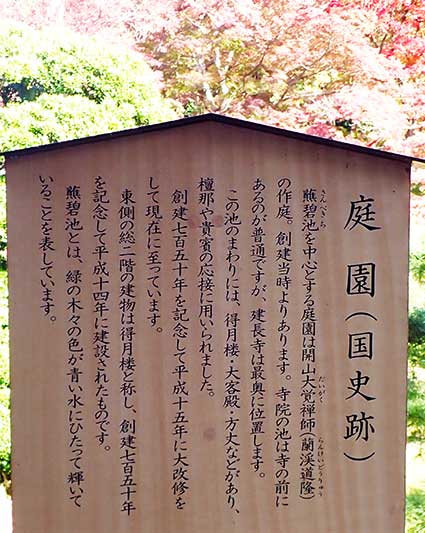 庭園(国史跡)
蘸碧池を中心とする庭園は開山大覚禅師(蘭渓道隆)
さんぺきち
だいがく
らんけいどうりゅう
の作庭。創建当時よりあります。寺院の池は寺の前に
あるのが普通ですが、建長寺は最奥に位置します。
この池のまわりには、得月楼・大客殿・方丈などがあり、
檀那や貴賓の応接に用いられました。
創建七百五十年を記念して平成十五年に大改修を
して現在に至っています。
東側の総二階の建物は得月楼と称し、創建七百五十年
を記念して平成十四年に建設されたものです。
蘸碧池とは、緑の木々の色が青い水にひたって輝いて
いることを表しています。